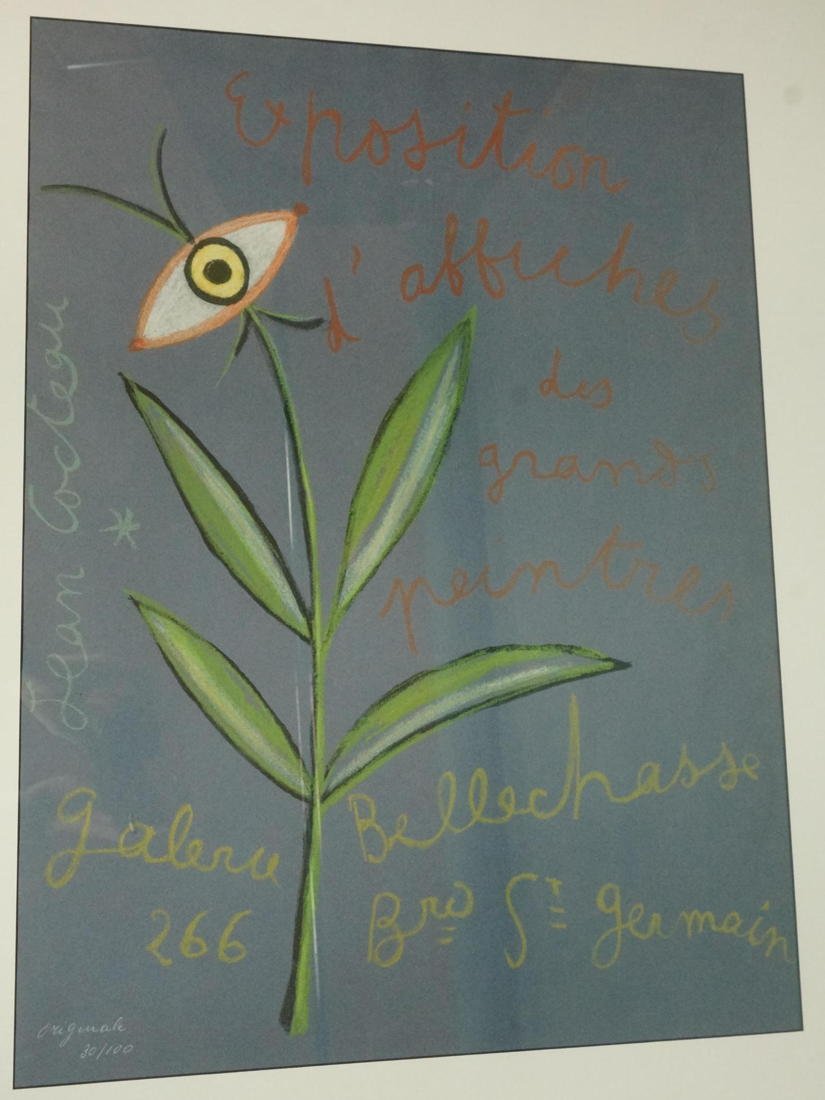 Exposition
d'affiches
des
grands
peintres
Jean Cocteau *
Galerie Bellechasse
266 Brd St Germain
originale
30/100